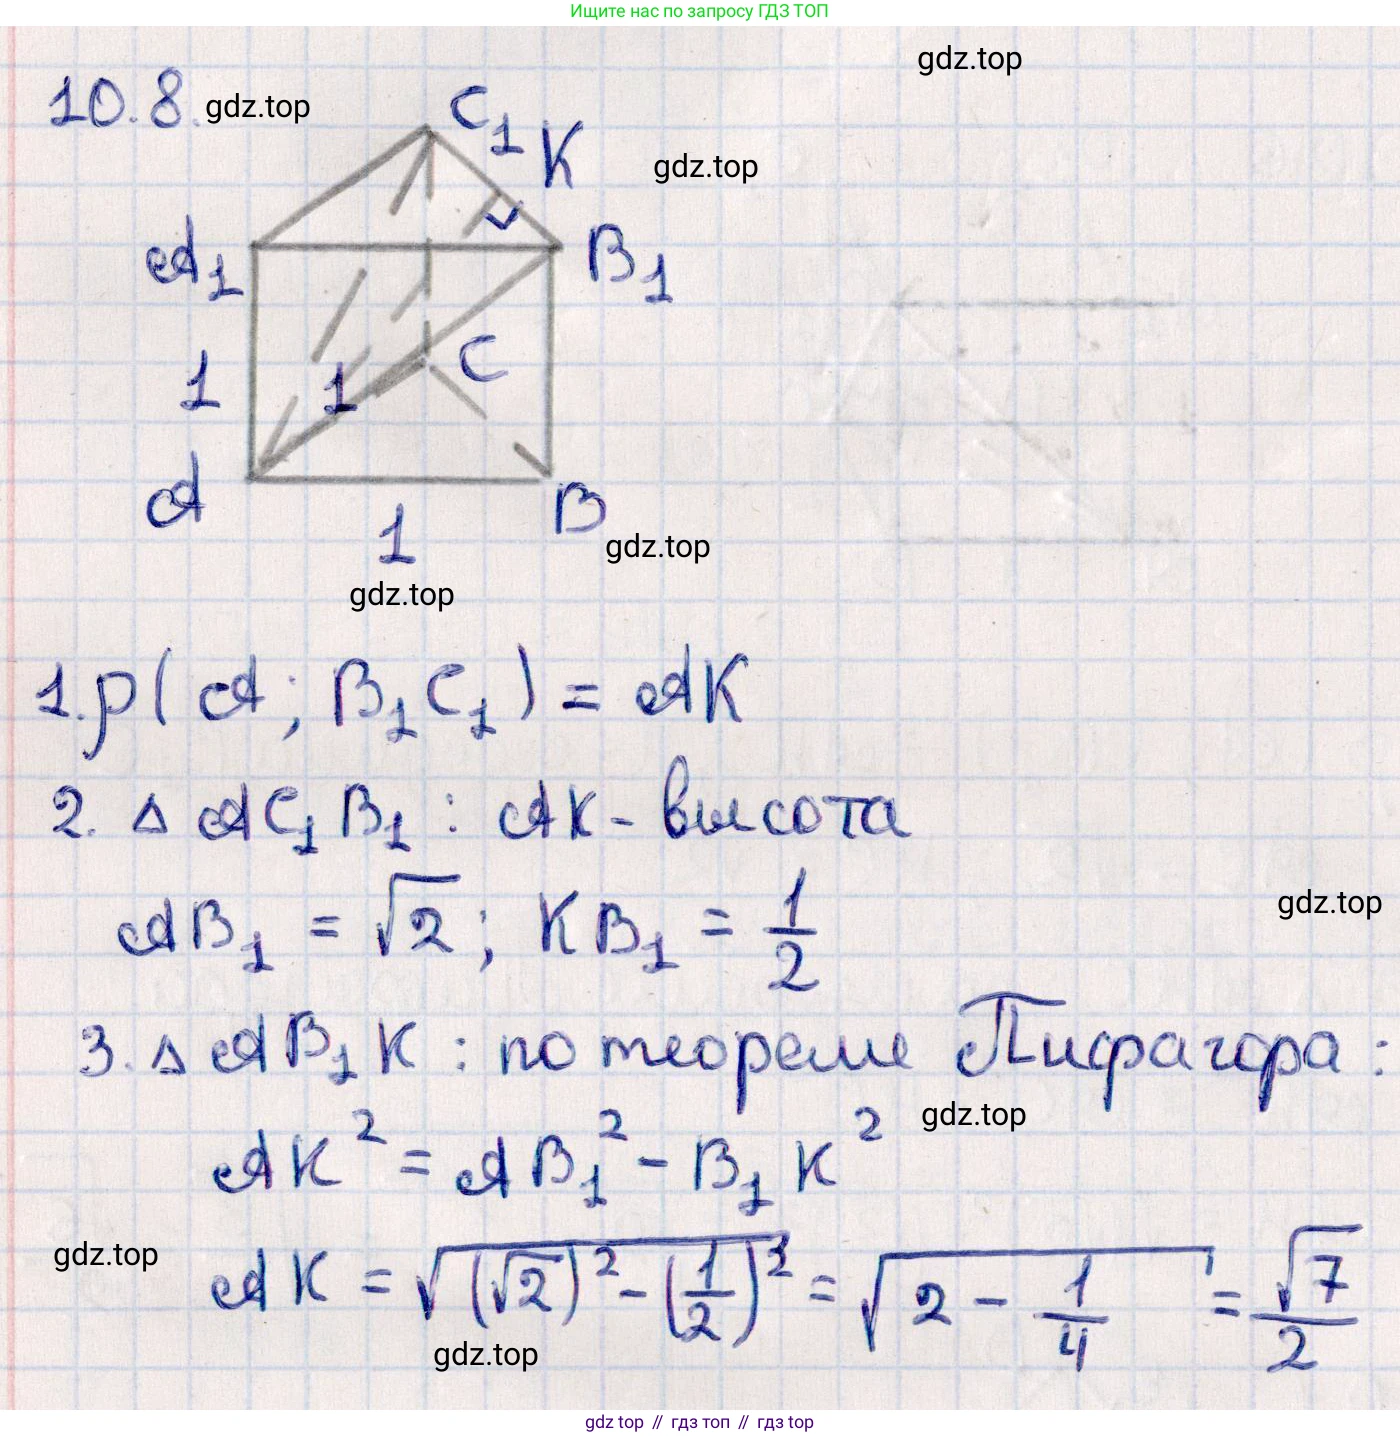 Ищите нас по запросу ГДЗ ТОП
gdz.top
10.8. gdz.top
C₁
K
gdz.top
A₁
B₁
C
1
1
A
B
1
gdz.top
gdz.top
1. ρ(A; B₁C₁) = AK
2. Δ AC₁B₁ : AK - высота
AB₁ = √2; KB₁ = 1/2
gdz.top
3. Δ AB₁K : по теореме Пифагора:
gdz.top
AK² = AB₁² - B₁K²
gdz.top
AK = √((√2)² - (1/2)²) = √(2 - 1/4) = √7/2
gdz.top
gdz top // гдз топ // гдз top